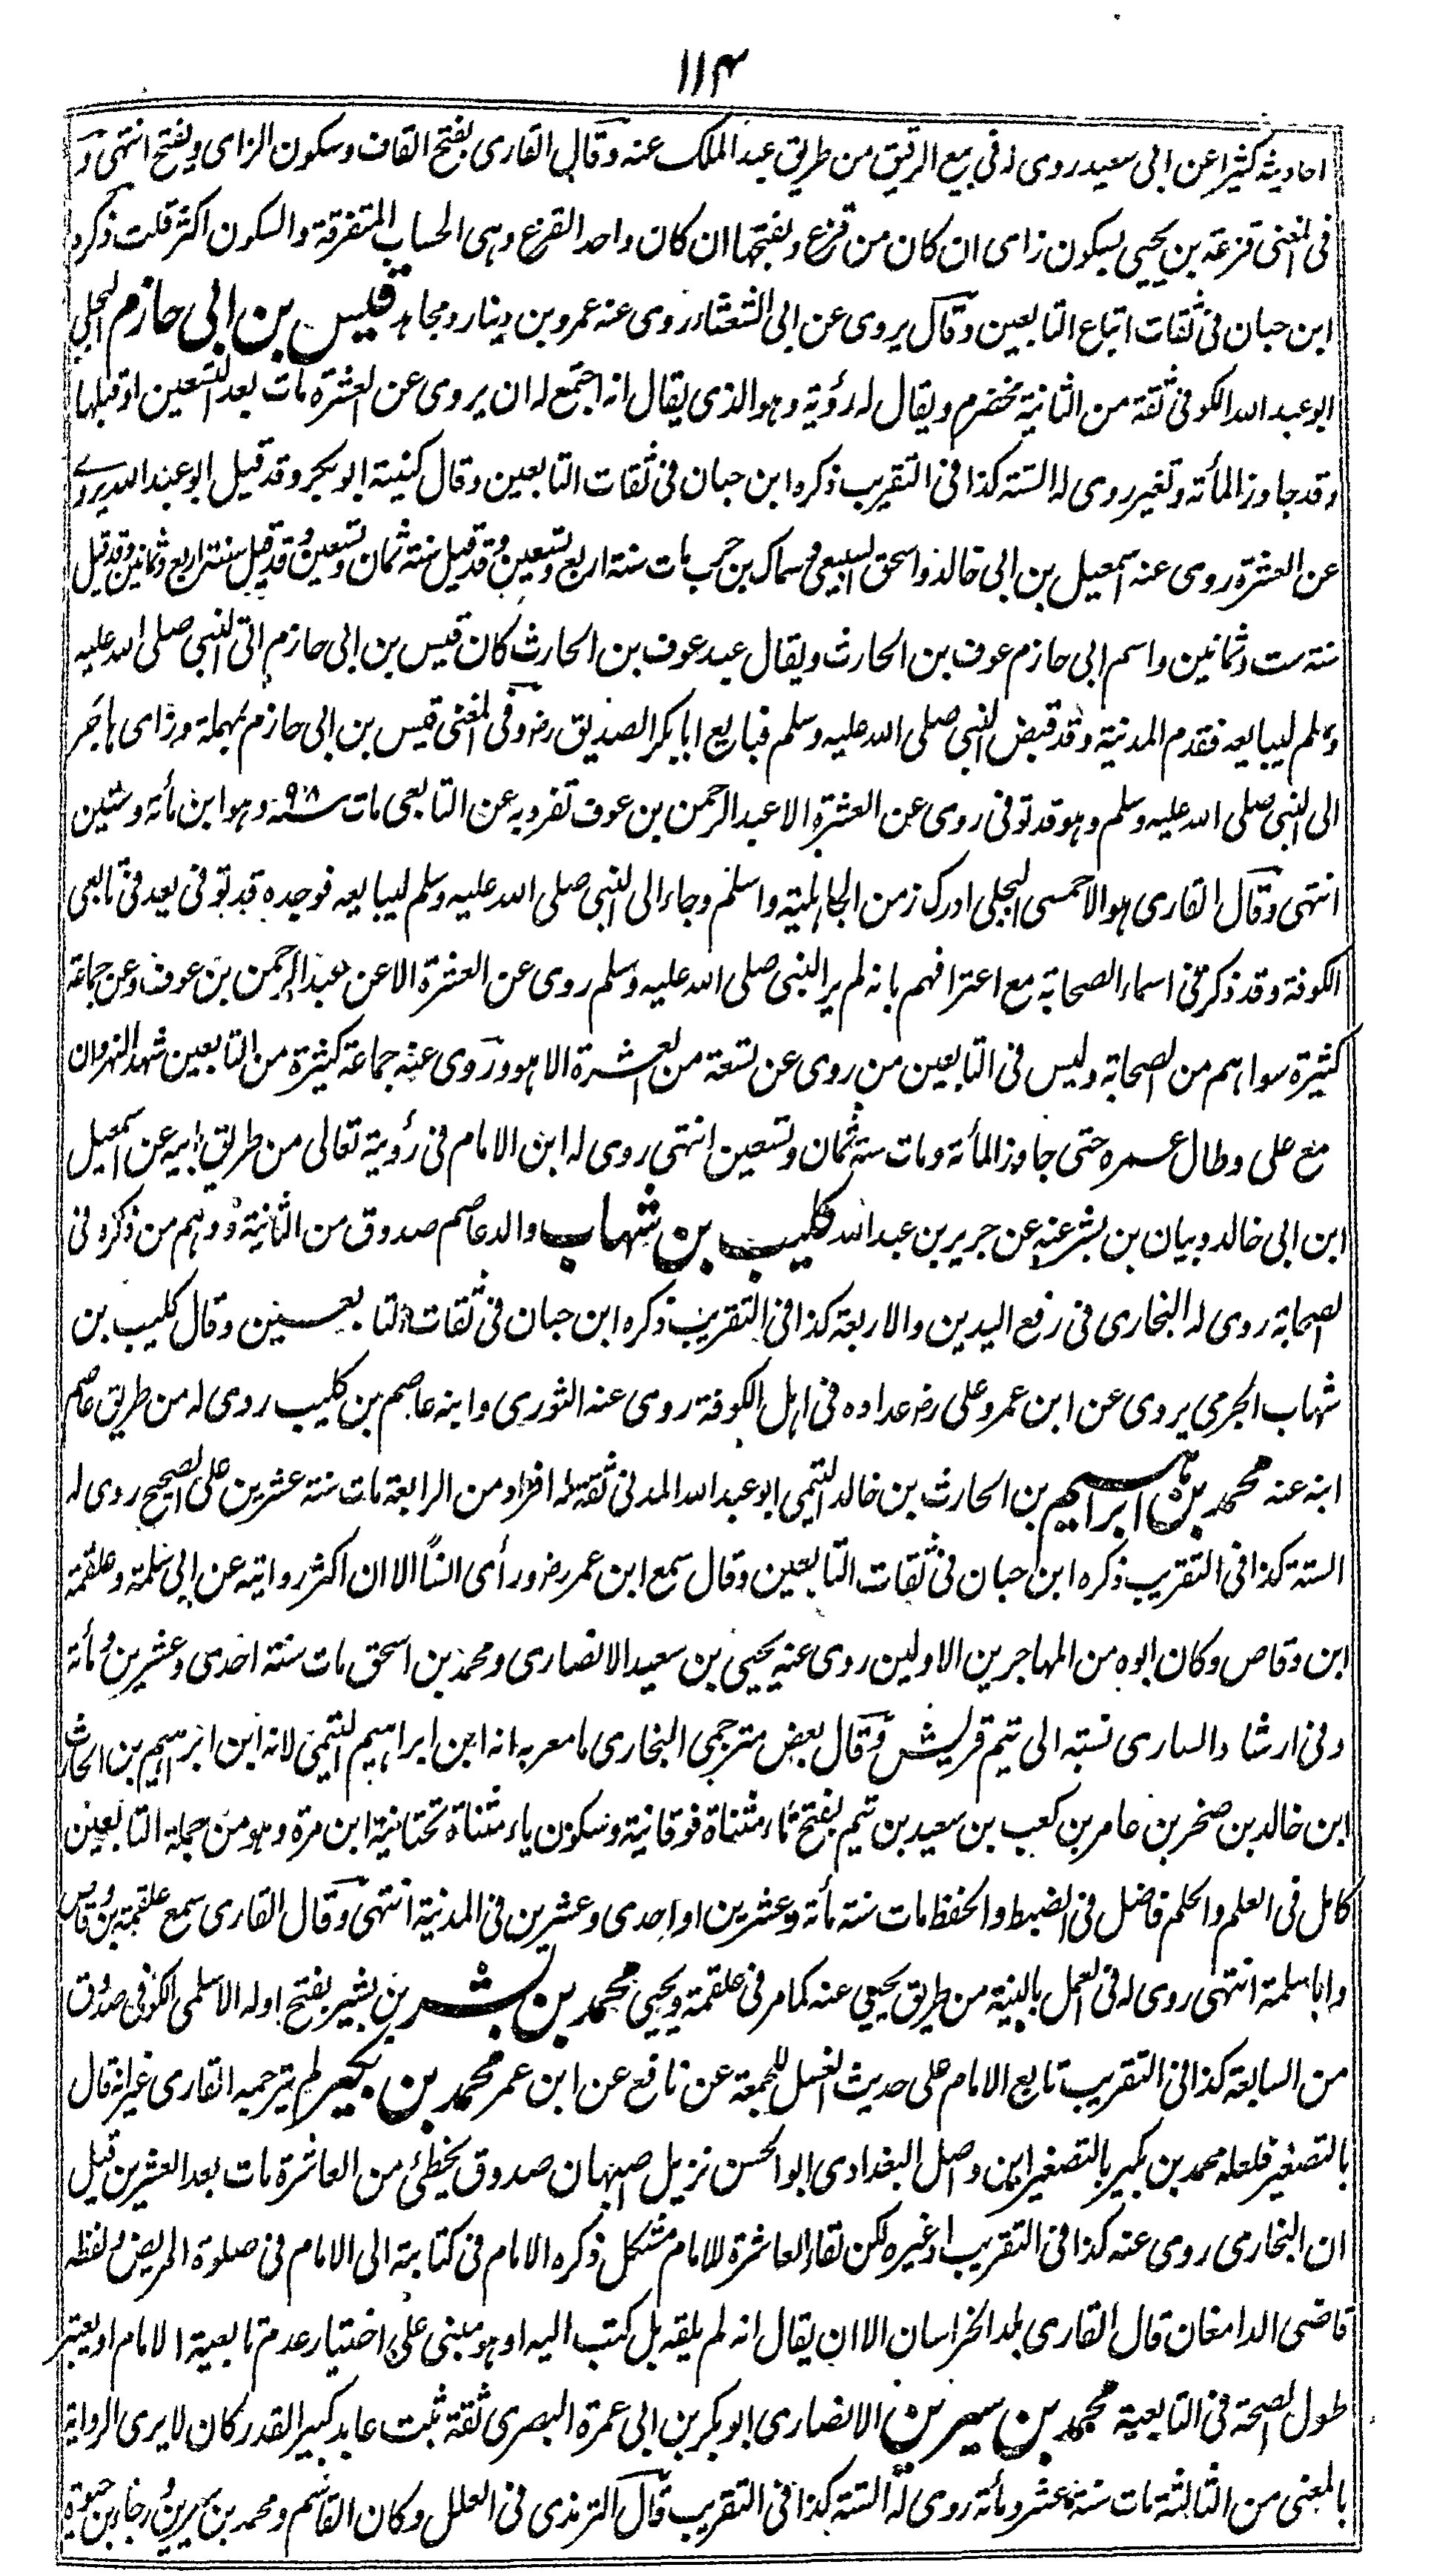 ۱۱۴
احاديث كثيرا عن ابى سعيد روى له فى بيع الرقيق من طريق عبد الملك عنه وقال القارى بفتح القاف وسكون الزاى ويفتح انتهى و
فى المغنى قزعة بن يحيى بسكون زاى ان كان من قزع وبفتحها ان كان واحد القزع وهى السحاب المتفرقة والسكون اكثر قلت ذكره
ابن حبان فى ثقات اتباع التابعين وقال يروى عن ابى الشعثاء روى عنه عمرو بن دينار ومجاهد قيس بن ابى حازم البجلى
ابو عبد الله الكوفى ثقة من الثانية مخضرم ويقال له رؤية وهو الذى يقال انه اجتمع له ان يروى عن العشرة مات بعد التسعين او قبلها
وقد جاوز المأته وتغير روى له الستة كذا فى التقريب ذكره ابن حبان فى ثقات التابعين وقال كنيته ابو بكر وقد قيل ابو عبد الله يروى
عن العشرة روى عنه اسمعيل بن ابى خالد واسحق السبيعى وسماك بن حرب مات سنة اربع وتسعين وقد قيل سنة ثمان وتسعين وقد قيل سنة اربع وثمانين وقد قيل
سنة ست وثمانين واسم ابى حازم عوف بن الحارث ويقال عبد عوف بن الحارث كان قيس بن ابى حازم اتى النبى صلى الله عليه
وسلم ليبايعه فقدم المدينة وقد قبض النبى صلى الله عليه وسلم فبايع ابا بكر الصديق رضـ وفى المغنى قيس بن ابى حازم بمهملة وزاى هاجر
الى النبى صلى الله عليه وسلم وهو قد توفى روى عن العشرة الا عبد الرحمن بن عوف تفرد به عن التابعى مات سنة ۹۸ وهو ابن مأته وستين
انتهى وقال القارى هو الاحمسى البجلى ادرك زمن الجاهلية واسلم وجاء الى النبى صلى الله عليه وسلم ليبايعه فوجده قد توفى يعد فى تابعى
الكوفة وقد ذكر فى اسماء الصحابة مع اعترافهم بانه لم ير النبى صلى الله عليه وسلم روى عن العشرة الا عن عبد الرحمن بن عوف وعن جماعة
كثيرة سواهم من الصحابة وليس فى التابعين من روى عن تسعة من العشرة الا هو وروى عنه جماعة كثيرة من التابعين شهد النهروان
مع على وطال عمره حتى جاوز المأتة ومات سنة ثمان وتسعين انتهى روى له ابن الامام فى رؤية تعالى من طريق ابيه عن اسمعيل
ابن ابى خالد وبيان بن بشر عنه عن جرير بن عبد الله كليب بن شهاب والد عاصم صدوق من الثانية ووهم من ذكره فى
الصحابة روى له البخارى فى رفع اليدين والاربعة كذا فى التقريب ذكره ابن حبان فى ثقات التابعين وقال كليب بن
شهاب الجرمى يروى عن ابن عمر وعلى رضـ عداده فى اهل الكوفة روى عنه الثورى وابنه عاصم بن كليب روى له من طريق عاصم
ابنه عنه محمد بن ابراهيم بن الحارث بن خالد التيمى ابو عبد الله المدنى ثقة له افراد من الرابعة مات سنة عشرين على الصحيح روى له
الستة كذا فى التقريب ذكره ابن حبان فى ثقات التابعين وقال سمع ابن عمر رضـ ورأى انسًا الا ان اكثر روايته عن ابى سلمة وعلقمة
ابن وقاص وكان ابوه من المهاجرين الاولين روى عنه يحيى بن سعيد الانصارى ومحمد بن اسحق مات سنة احدى وعشرين ومأتة
وفى ارشاد السارى نسبته الى تيم قريش وقال بعض مترجمى البخارى ما معربه انه ابن ابراهيم التيمى لانه ابن ابراهيم بن الحارث
ابن خالد بن صخر بن عامر بن كعب بن سعيد بن تيم بفتح تاء مثناة فوقانية وسكون ياء مثناة تحتانية ابن مرة وهو من جملة التابعين
كامل فى العلم والحلم فاضل فى الضبط والحفظ مات سنة مأتة وعشرين او احدى وعشرين فى المدينة انتهى وقال القارى سمع علقمة بن وقاص
وابا سلمة انتهى روى له فى العمل بالنية من طريق يحيى عنه كما مر فى علقمة ويحيى محمد بن بشر بن بشير بفتح اوله الاسلمى الكوفى صدوق
من السابعة كذا فى التقريب تابع الامام على حديث الغسل للجمعة عن نافع عن ابن عمر محمد بن بكير لم يترجمه القارى غير انه قال
بالتصغير فلعله محمد بن بكير بالتصغير ابن واصل البغدادى ابو الحسن نزيل اصبهان صدوق يخطئ من العاشرة مات بعد العشرين قيل
ان البخارى روى عنه كذا فى التقريب او غيره لكن لقاء العاشرة للامام مشكل ذكره الامام فى كتابته الى الامام فى صلوة المريض ولفظه
قاضى الدامغان قال القارى بلد الخراسان الا ان يقال انه لم يلقه بل كتب اليه او هو مبنى على اختيار عدم تابعية الامام او يعتبر
طول الصحة فى التابعية محمد بن سيرين الانصارى ابو بكر بن ابى عمرة البصرى ثقة ثبت عابد كبير القدر كان لا يرى الرواية
بالمعنى من الثالثة مات سنة عشر ومأتة روى له الستة كذا فى التقريب قال الترمذى فى العلل وكان القاسم ومحمد بن سيرين ورجاء بن حيوة